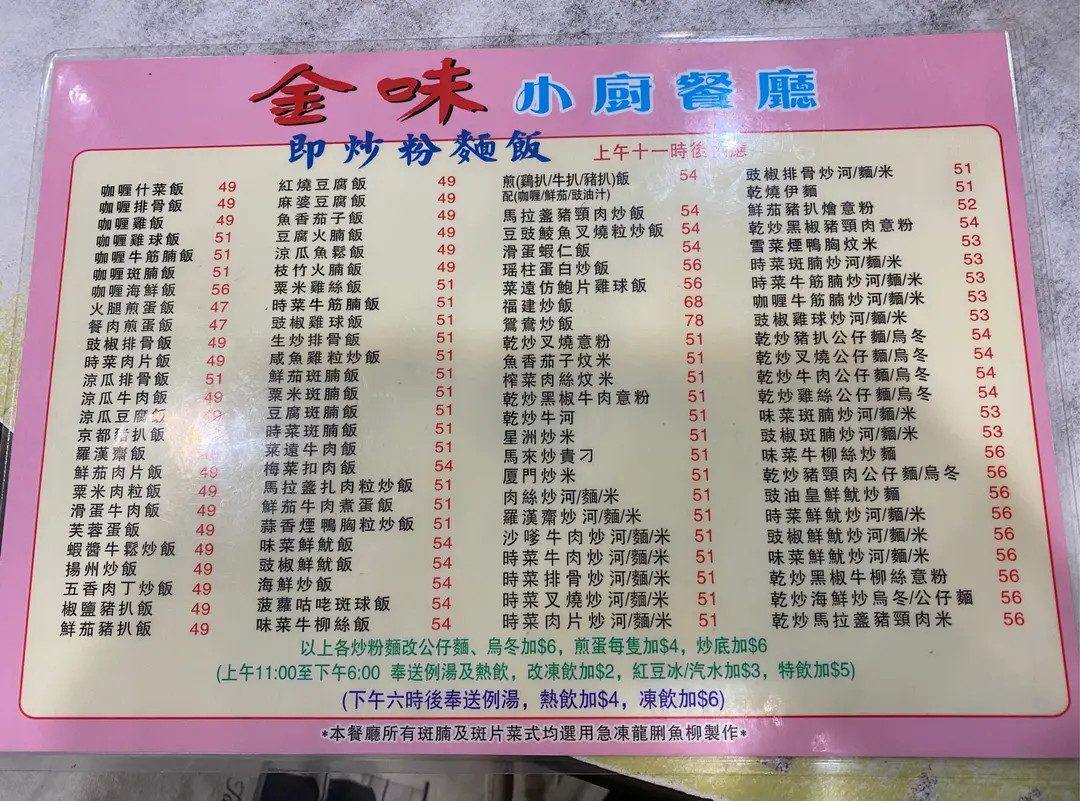 金味小廚餐廳
即炒粉麵飯
上午十一時後
咖喱什菜飯 49
咖喱排骨飯 49
咖喱雞飯 49
咖喱雞球飯 51
咖喱牛筋腩飯 51
咖喱斑腩飯 51
咖喱海鮮飯 56
火腿煎蛋飯 47
餐肉煎蛋飯 47
豉椒排骨飯 49
時菜肉片飯 49
涼瓜排骨飯 51
涼瓜牛肉飯 49
涼瓜豆腐飯
京都豬扒飯
羅漢齋飯
鮮茄肉片飯 49
粟米肉粒飯 49
滑蛋牛肉飯 49
芙蓉蛋飯 49
蝦醬牛鬆炒飯 49
揚州炒飯 49
五香肉丁炒飯 49
椒鹽豬扒飯 49
鮮茄豬扒飯 49
紅燒豆腐飯 49
麻婆豆腐飯 49
魚香茄子飯 49
豆腐火腩飯 49
涼瓜魚鬆飯 49
枝竹火腩飯 49
粟米雞絲飯 51
時菜牛筋腩飯 51
豉椒雞球飯 51
生炒排骨飯 51
咸魚雞粒炒飯 51
鮮茄斑腩飯 51
粟米斑腩飯 51
豆腐斑腩飯 51
時菜斑腩飯 51
菜遠牛肉飯 51
梅菜扣肉飯 54
馬拉盞扎肉粒炒飯 51
鮮茄牛肉煮蛋飯 51
蒜香煙鴨胸粒炒飯 51
味菜鮮魷飯 54
豉椒鮮魷飯 54
海鮮炒飯 54
菠蘿咕咾斑球飯 54
味菜牛柳絲飯 54
煎(鷄扒/牛扒/豬扒)飯 54
配(咖喱/鮮茄/豉油汁)
馬拉盞豬頸肉炒飯 54
豆豉鯪魚叉燒粒炒飯 54
滑蛋蝦仁飯 54
瑤柱蛋白炒飯 56
菜遠仿鮑片雞球飯 56
福建炒飯 68
鴛鴦炒飯 78
乾炒叉燒意粉 51
魚香茄子炆米 51
榨菜肉絲炆米 51
乾炒黑椒牛肉意粉 51
乾炒牛河 51
星洲炒米 51
馬來炒貴刁 51
厦門炒米 51
肉絲炒河/麵/米 51
羅漢齋炒河/麵/米 51
沙嗲牛肉炒河/麵/米 51
時菜牛肉炒河/麵/米 51
時菜排骨炒河/麵/米 51
時菜叉燒炒河/麵/米 51
時菜肉片炒河/麵/米 51
豉椒排骨炒河/麵/米 51
乾燒伊麵 51
鮮茄豬扒燴意粉 52
乾炒黑椒豬頸肉意粉 54
雪菜煙鴨胸炆米 53
時菜斑腩炒河/麵/米 53
時菜牛筋炒河/麵/米 53
咖喱牛筋腩炒河/麵/米 53
豉椒雞球炒河/麵/米 53
乾炒豬扒公仔麵/烏冬 54
乾炒叉燒公仔麵/烏冬 54
乾炒牛肉公仔麵/烏冬 54
乾炒雞絲公仔麵/烏冬 54
味菜斑腩炒河/麵/米 53
豉椒斑腩炒河/麵/米 53
味菜牛柳絲炒麵 56
乾炒豬頸肉公仔麵/烏冬 56
豉油皇鮮魷炒麵 56
時菜鮮魷炒河/麵/米 56
豉椒鮮魷炒河/麵/米 56
味菜鮮魷炒河/麵/米 56
乾炒黑椒牛柳絲意粉 56
乾炒海鮮炒烏冬/公仔麵 56
乾炒馬拉盞豬頸肉米 56
以上各炒粉麵改公仔麵、烏冬加$6，煎蛋每隻加$4，炒底加$6
(上午11:00至下午6:00 奉送例湯及熱飲，改凍飲加$2，紅豆冰/汽水加$3，特飲加$5)
(下午六時後奉送例湯，熱飲加$4，凍飲加$6)
*本餐廳所有斑腩及斑片菜式均選用急凍龍脷魚柳製作*